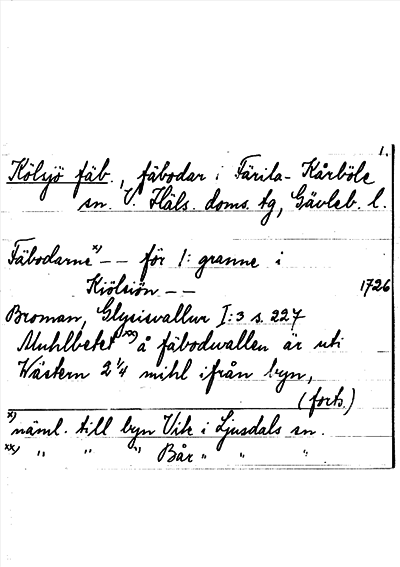 1.
Kölsjö fäb., fäbodar i Färila-Kårböle
sn. V. Häls. doms. tg, Gävleb. l.
Fäbodarne x) -- för 1: granne i
Kiölsiön -- 1726
Broman, Glysisvallur I:3 s. 227
Muhlbetet xx) å fäbodwallen är uti
Wästern 2 1/4 mihl ifrån byn,
(forts.)
x) näml. till byn Vik i Ljusdals sn.
xx) " " " Bår " " "